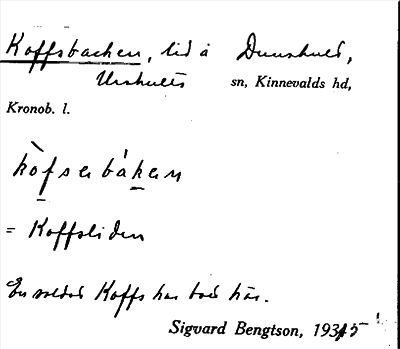 Koffsbacken, lid å Dunshult,
Urshults sn, Kinnevalds hd,
Kronob. l.
kòfsabákan
= Koffsliden
En soldat Koffs har bott här.
Sigvard Bengtson, 1935